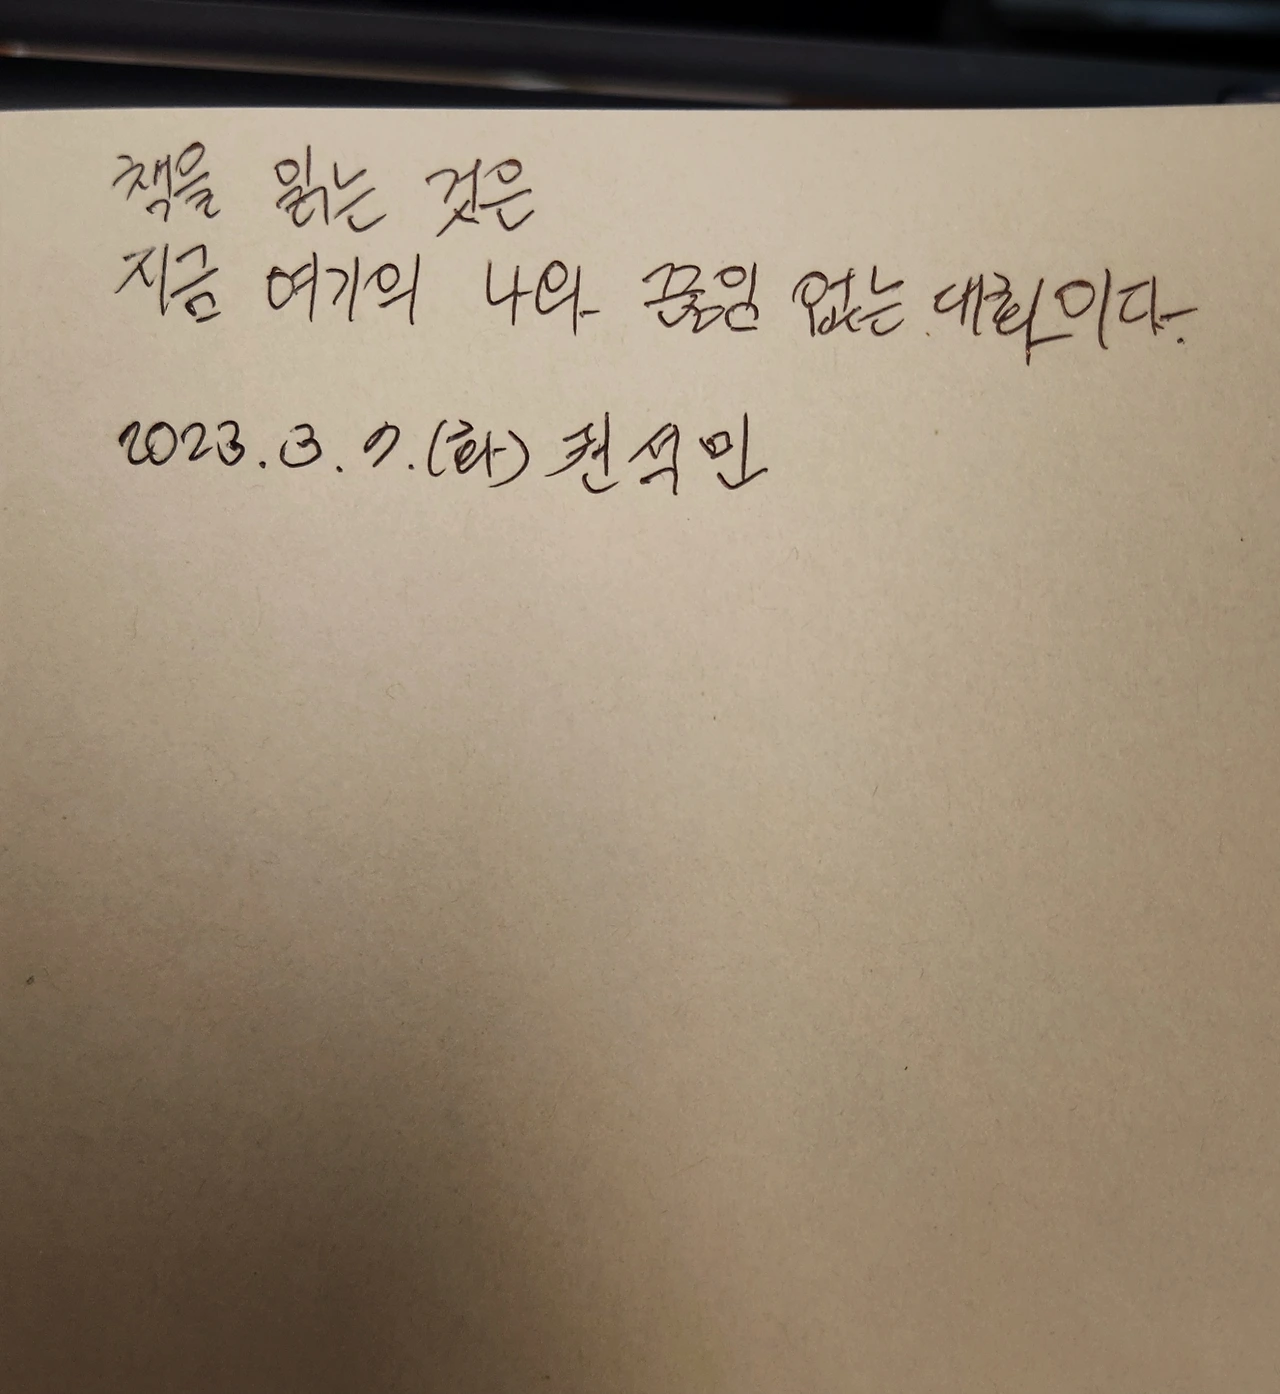 책을 읽는 것은
지금 여기의 나와 끊임 없는 대화이다.
2023. 3. 7. (화) 권석민